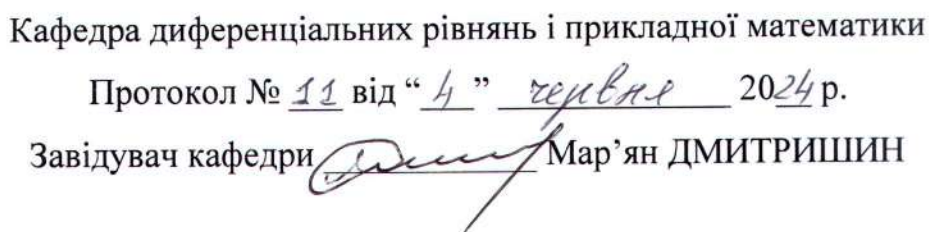 Кафедра диференціальних рівнянь і прикладної математики
Протокол № 11 від “ 4 ” червня 2024 р.
Завідувач кафедри Мар’ян ДМИТРИШИН